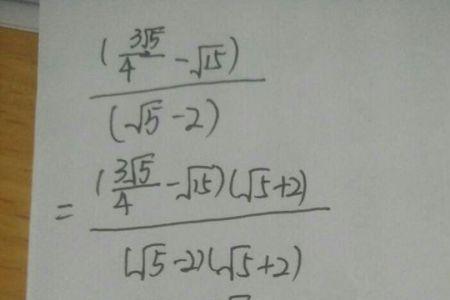 (3√5/4 - √15)
(√5 - 2)
= (3√5/4 - √15)(√5+2)
(√5-2)(√5+2)